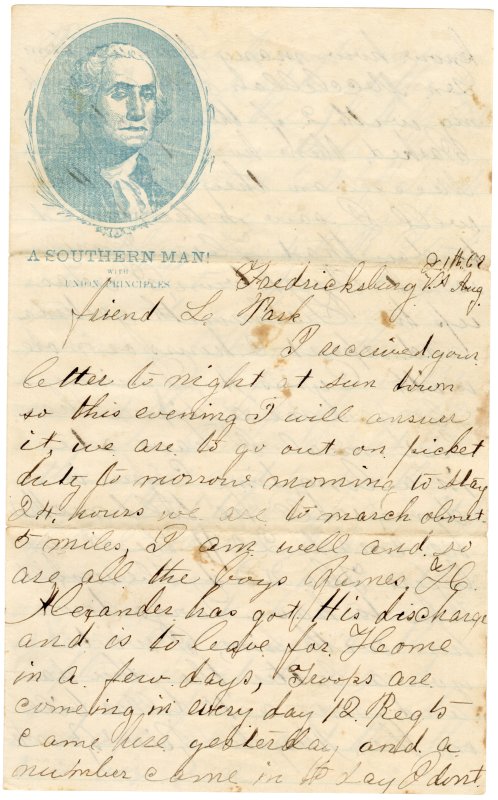 A SOUTHERN MAN!
WITH
UNION PRINCIPLES
Fredricksburg VA Aug. 21th, 62
friend L. Park
I received your
letter to night at sun down
so this evening I will answer
it, we are to go out on picket
duty to morrow morning to stay
24, hours we are to march about
5 miles, I am well and so
are all the boys James, H.
Alexander has got His discharge
and is to leave for Home
in a few days, Troops are
comeing in every day 12 Regts
came yesterday and a
number came in to day I dont